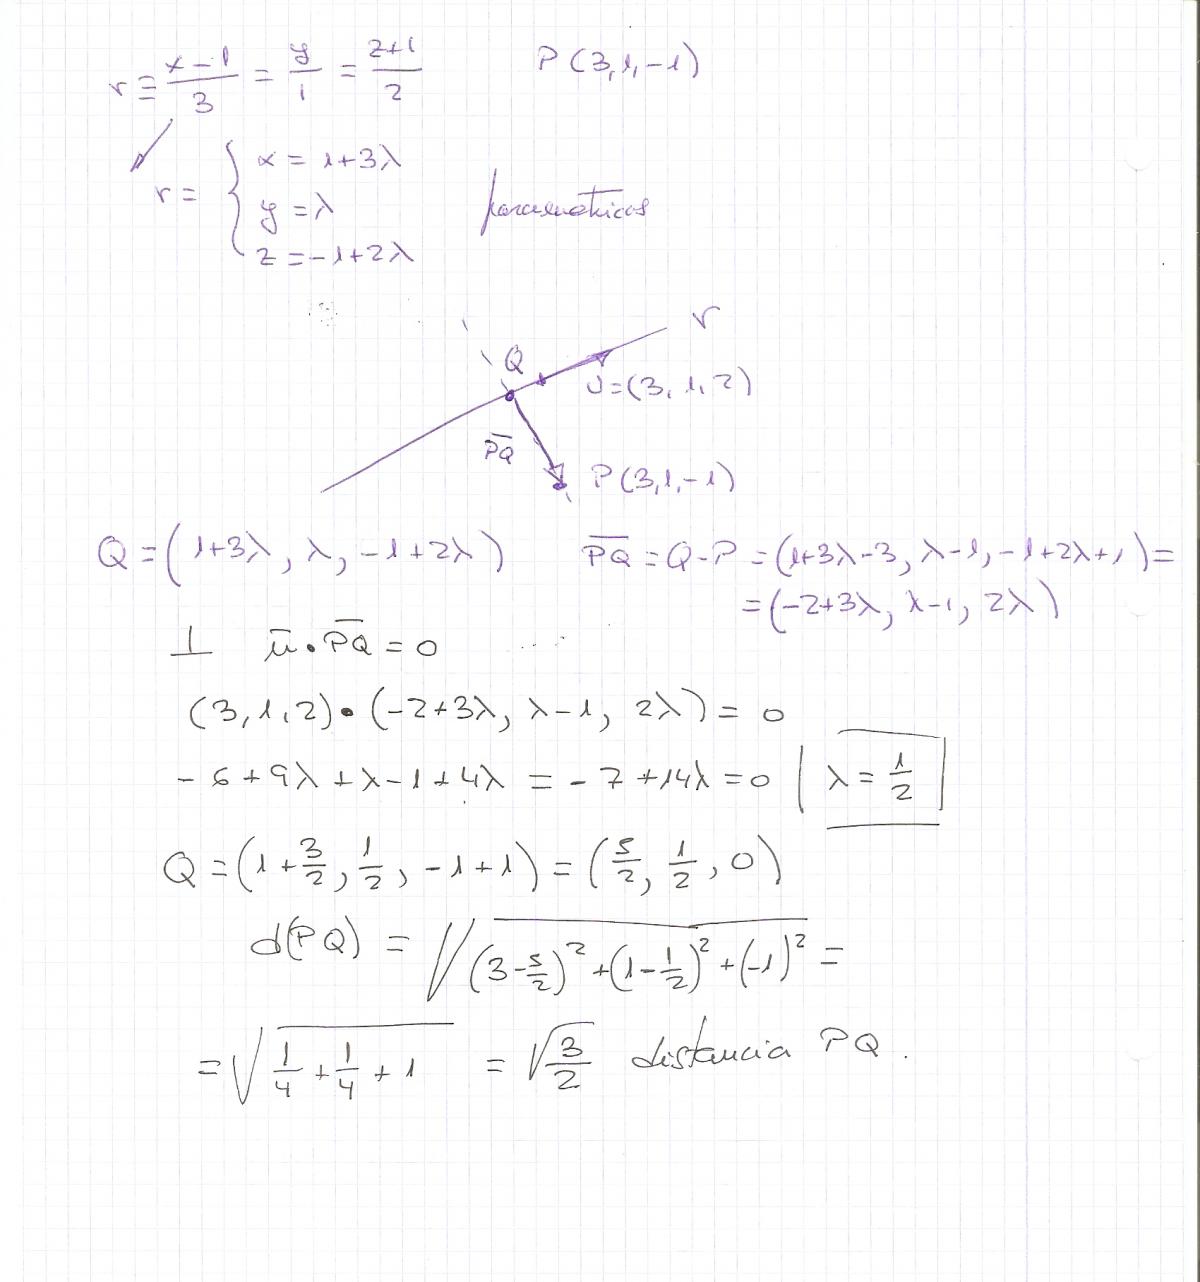 r ≡ x-1/3 = y/1 = z+1/2 P(3,1,-1)
r = { x = 1+3λ
y = λ
z = -1+2λ
parametricas
r
Q
U=(3,1,2)
PQ
P(3,1,-1)
Q = (1+3λ, λ, -1+2λ) PQ = Q-P = (1+3λ-3, λ-1, -1+2λ+1) =
= (-2+3λ, λ-1, 2λ)
⊥ u • PQ = 0
(3,1,2) • (-2+3λ, λ-1, 2λ) = 0
-6+9λ+λ-1+4λ = -7+14λ=0 | λ = 1/2 |
Q = (1+3/2, 1/2, -1+1) = (5/2, 1/2, 0)
d(PQ) = √(3-5/2)²+(1-1/2)²+(-1)² =
= √1/4+1/4+1 = √3/2 distancia PQ.